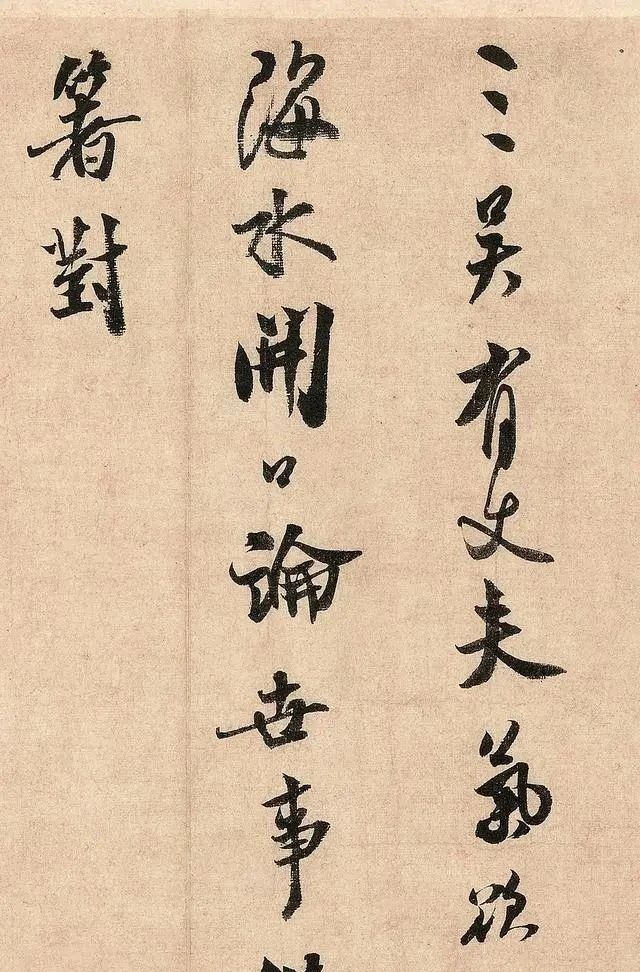 三吴有丈夫氣欲
海水開口論世事
箸對